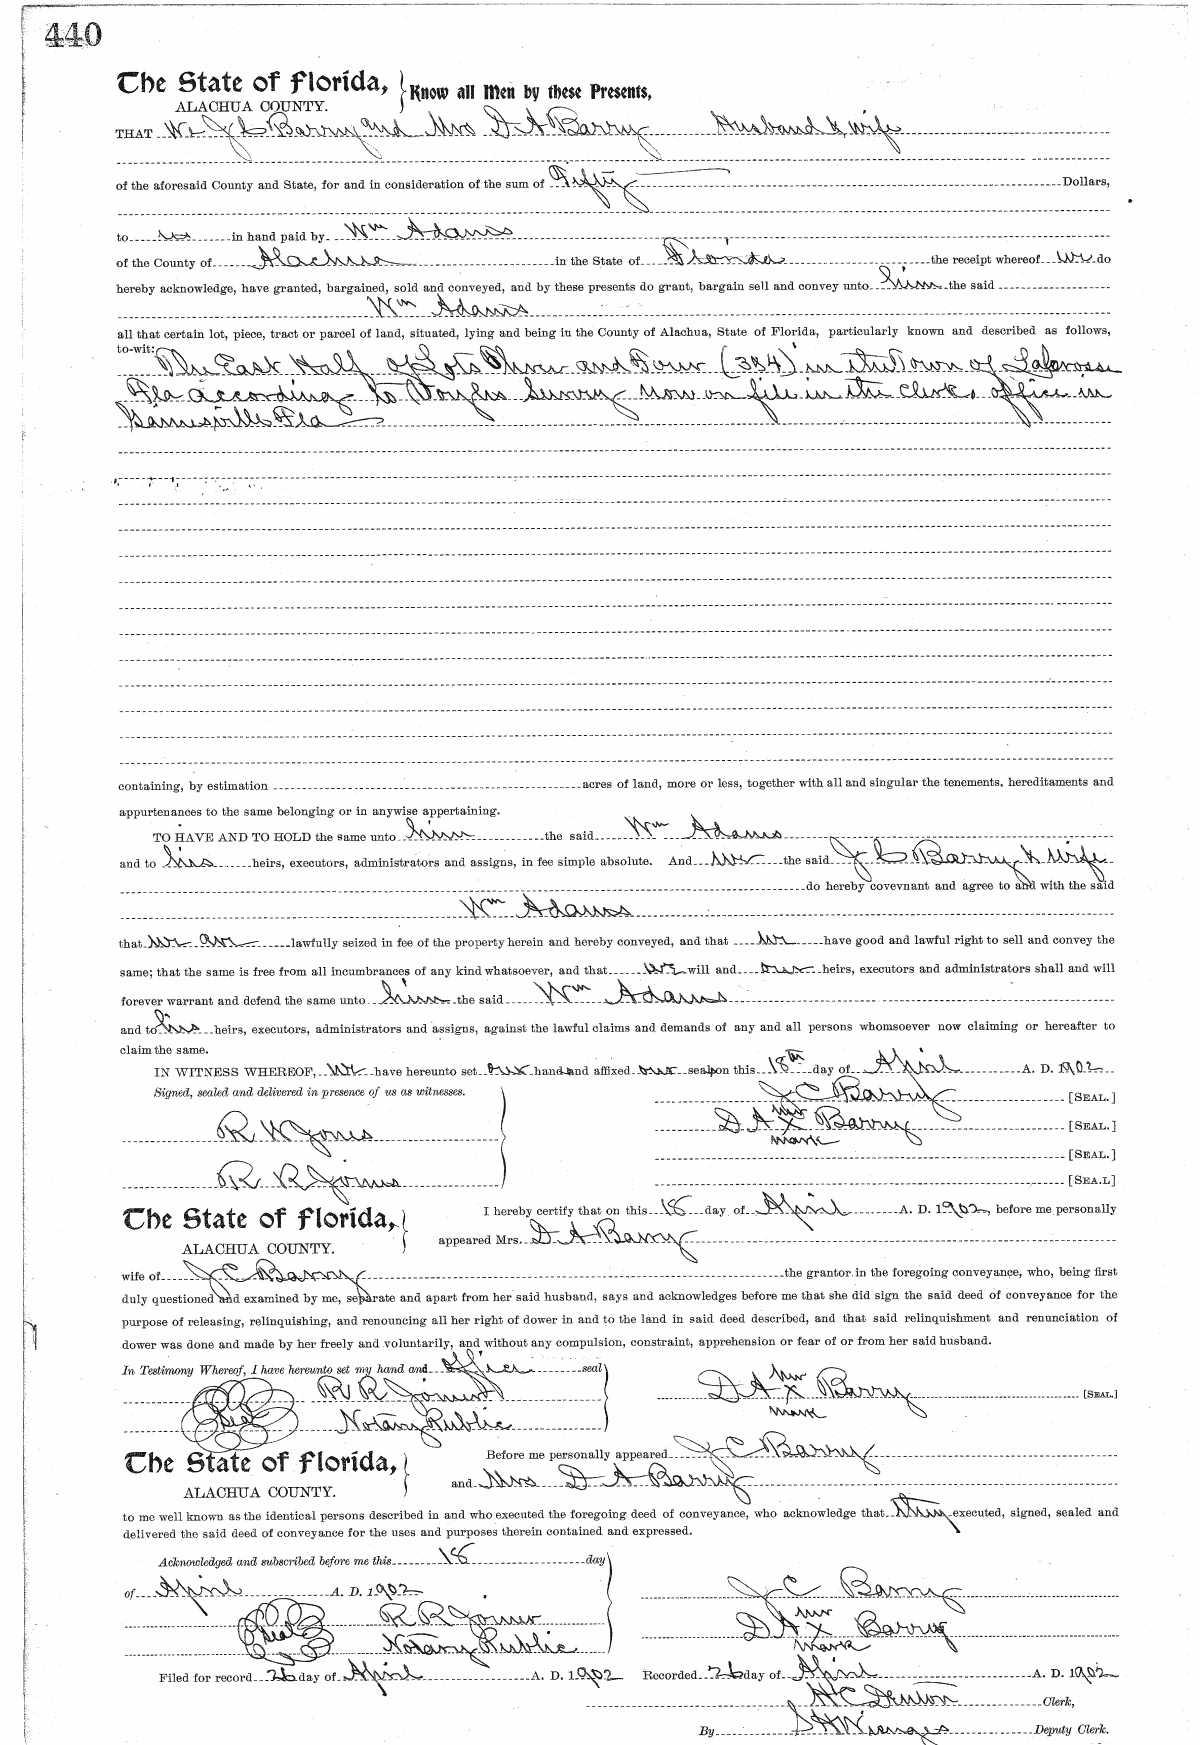 440
The State of Florida, Know all Men by these Presents,
ALACHUA COUNTY.
THAT We J C Barry and Mrs D A Barry Husband & wife
of the aforesaid County and State, for and in consideration of the sum of Fifty Dollars,
to us in hand paid by Wm Adams
of the County of Alachua in the State of Florida the receipt whereof we do
hereby acknowledge, have granted, bargained, sold and conveyed, and by these presents do grant, bargain sell and convey unto him the said
Wm Adams
all that certain lot, piece, tract or parcel of land, situated, lying and being in the County of Alachua, State of Florida, particularly known and described as follows,
to-wit: The East Half of Lots Three and Four (3&4) in the Town of Lacrosse
Fla according to survey now on file in the Clerks office in
Gainesville Fla
containing, by estimation acres of land, more or less, together with all and singular the tenements, hereditaments and
appurtenances to the same belonging or in anywise appertaining.
TO HAVE AND TO HOLD the same unto him the said Wm Adams
and to his heirs, executors, administrators and assigns, in fee simple absolute. And we the said J C Barry & wife
do hereby covevnant and agree to and with the said
Wm Adams
that we are lawfully seized in fee of the property herein and hereby conveyed, and that we have good and lawful right to sell and convey the
same; that the same is free from all incumbrances of any kind whatsoever, and that we will and our heirs, executors and administrators shall and will
forever warrant and defend the same unto him the said Wm Adams
and to his heirs, executors, administrators and assigns, against the lawful claims and demands of any and all persons whomsoever now claiming or hereafter to
claim the same.
IN WITNESS WHEREOF, we have hereunto set our hand and affixed our seal on this 18th day of April A. D. 1902
Signed, sealed and delivered in presence of us as witnesses. J C Barry [SEAL.]
her
R W Jones D A x Barry [SEAL.]
mark
[SEAL.]
R R Joines [SEA.L]
The State of Florida, I hereby certify that on this 18 day of April A. D. 1902, before me personally
ALACHUA COUNTY. appeared Mrs. D A Barry
wife of J C Barry the grantor in the foregoing conveyance, who, being first
duly questioned and examined by me, separate and apart from her said husband, says and acknowledges before me that she did sign the said deed of conveyance for the
purpose of releasing, relinquishing, and renouncing all her right of dower in and to the land in said deed described, and that said relinquishment and renunciation of
dower was done and made by her freely and voluntarily, and without any compulsion, constraint, apprehension or fear of or from her said husband.
In Testimony Whereof, I have hereunto set my hand and office seal
her
Seal R R D A x Barry [SEAL.]
mark
Notary Public
The State of Florida, Before me personally appeared J C Barry
ALACHUA COUNTY. and Mrs D A Barry
to me well known as the identical persons described in and who executed the foregoing deed of conveyance, who acknowledge that they executed, signed, sealed and
delivered the said deed of conveyance for the uses and purposes therein contained and expressed.
Acknowledged and subscribed before me this 18 day
of April A. D. 1902 J C Barry
her
Seal R R D A x Barry
mark
Notary Public
Filed for record 26 day of April A. D. 1902 Recorded 26 day of April A. D. 1902
H C Denton Clerk,
By S H Wienges Deputy Clerk.